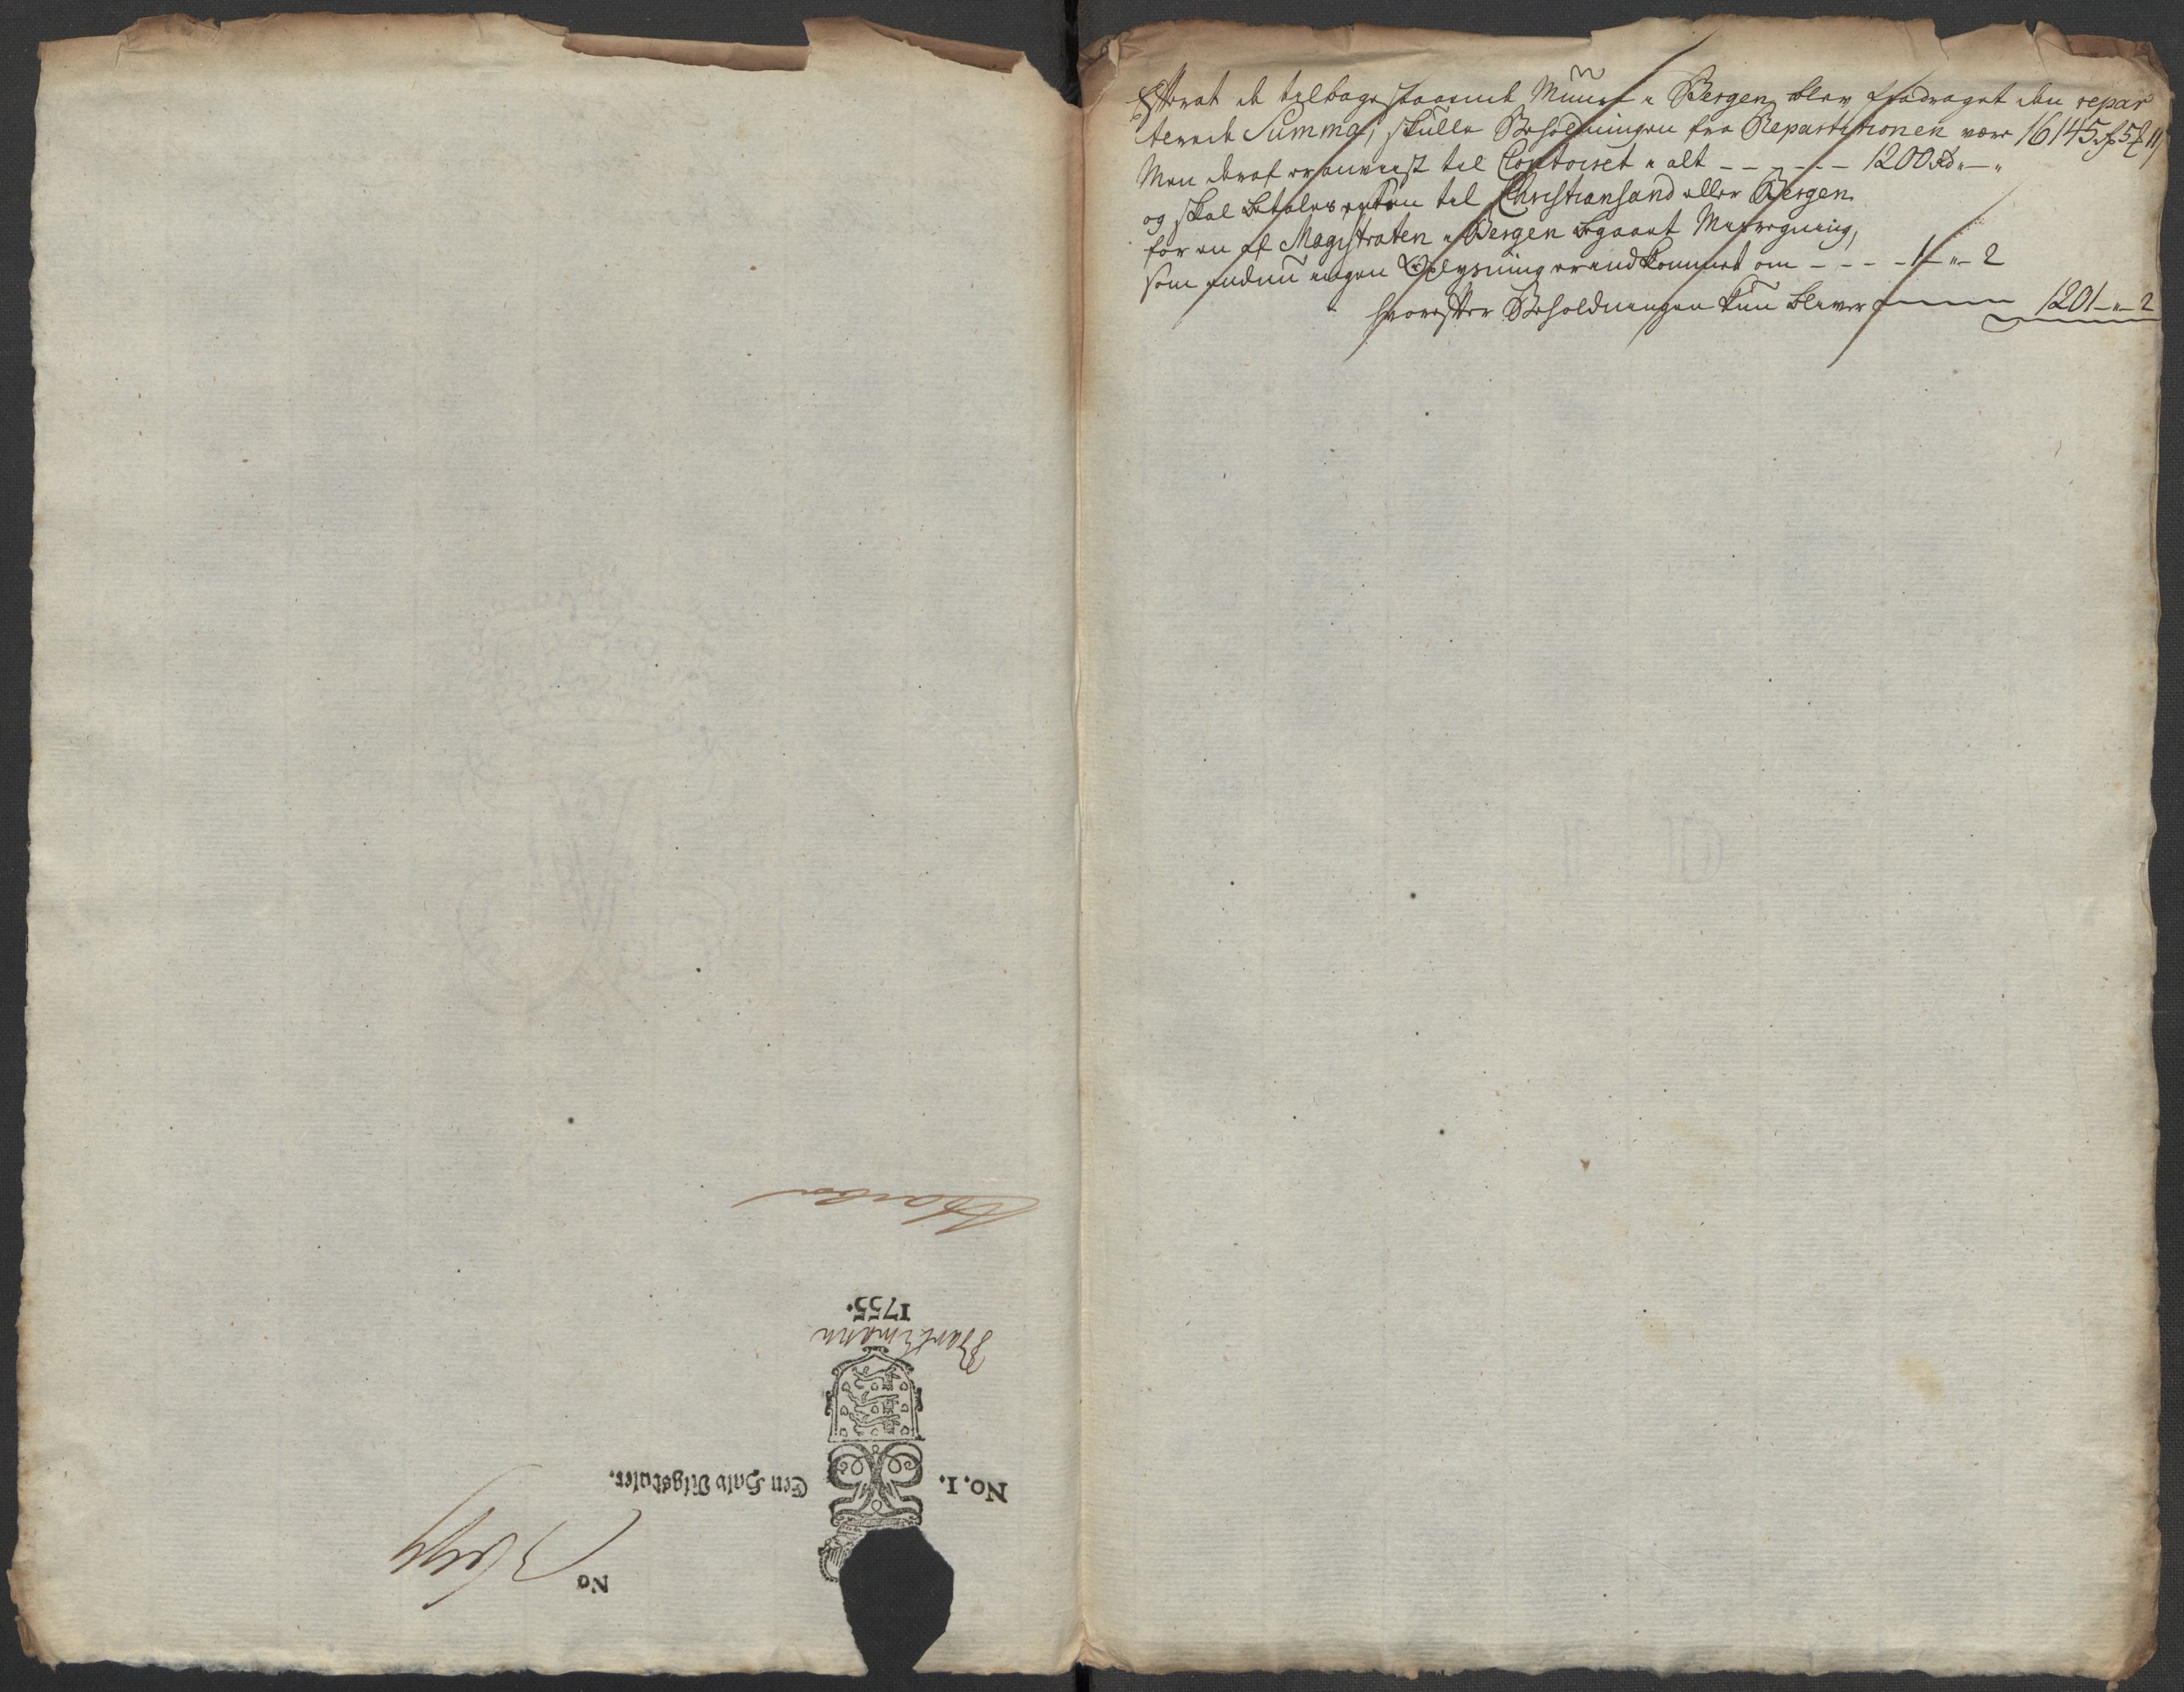 Efterat de tilbagestaaende Muure i Bergen blev fradraget den repar
terede Summa, skulle Beholdningen fra Repartitionen være 16145
Men deraf er anviist til Contoiret i alt - - - - - - 1200 Rd „ — „
og skal betales enten til Christiansand eller Bergen
for en af Magistraten i Bergen begaaet Misregning,
som endnu ingen Oplysning er indkommet om - - - - 1 — „ — 2
hvorefter Beholdningen kun bliver 1201 — „ — 2
No
No. 1. Een Halv Rigsdaler.
1755.